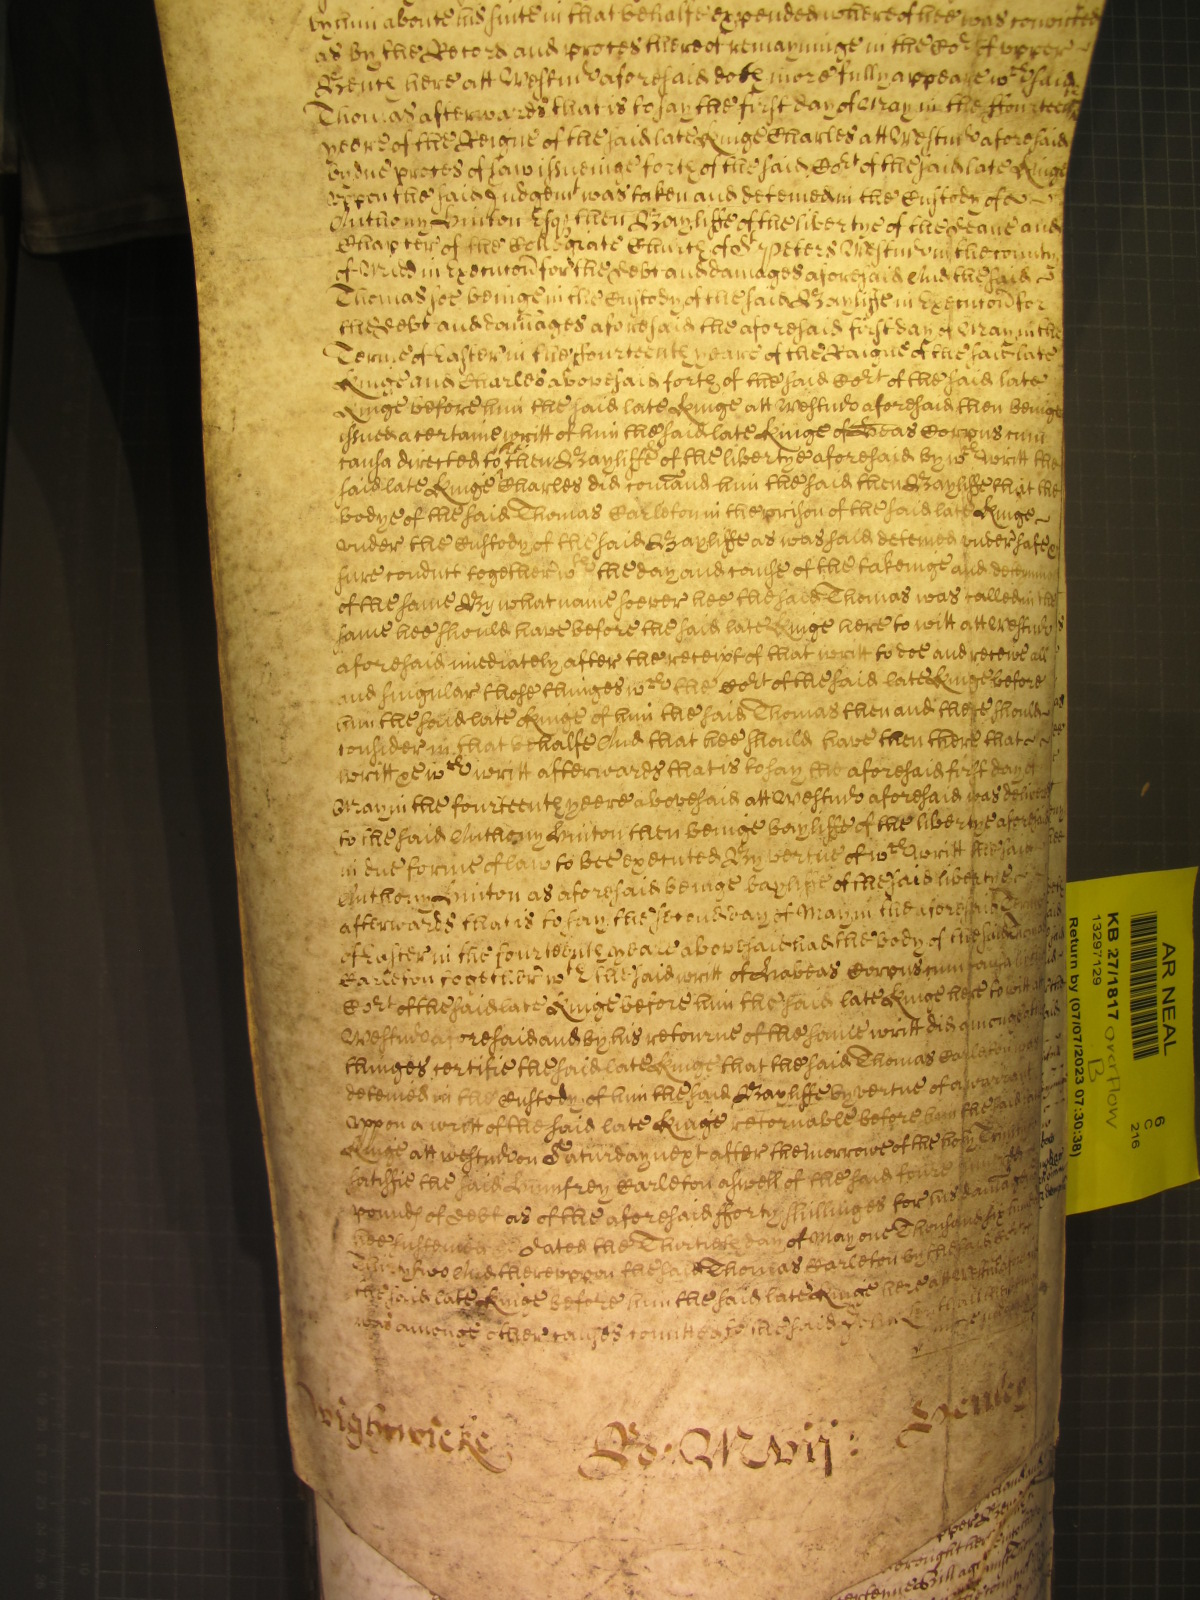 by him aboute his suite in that behalfe expended whereof hee was convicted
as by the Record and proces thereof remayninge in the Cort of upper
Bench here att Westmr aforesaid doth more fully appeare wch said
Thomas afterwards that is to say the first day of May in the ffourteenth
yeere of the Reigne of the said late Kinge Charles att Westmr aforesaid
by due proces of law issueinge forth of the said Cort of the said late Kinge
uppon the said Judgemt was taken and deteined in the Custody of
Anthony Hinton Esqr then Bayliffe of the libertye of the Deane and
Chapter of the Collegiate Church of St Peters Westmr in the county
of Midd in Execucon for the debt and damages aforesaid And the said
Thomas soe beinge in the Custody of the said Bayliffe in Execucon for
the debt and damages aforesaid the aforesaid first day of May in the
Terme of Easter in the fourteenth yeare of the Raigne of the said late
Kinge and Charles abovesaid forth of the said Cort of the said late
Kinge before him the said late Kinge att Westmr aforesaid then beinge
issued a certaine writt of him the said late Kinge of Heas Corpus cum
causa directed to the then Bayliffe of the libertye aforesaid by wch writt the
said late Kinge Charles did comand him the said then Bayliffe that the
bodye of the said Thomas Carleton in the prison of the said late Kinge
under the Custody of the said Bayliffe as was said deteined under safe &
sure conduct together wth the day and cause of the takeinge and deteininge
of the same By what name soever hee the said Thomas was called in the
same hee should have before the said late Kinge here to witt att Westmr
aforesaid imediately after the receipt of that writt to doe and receive all
and singular those thinges wch the Cort of the said late Kinge before
him the said late Kinge of him the said Thomas then and there should
consider in that behalfe And that hee should have then there that
writt wch writt afterwards that is to say the aforesaid first day of
May in the fourteenth yeere abovesaid att Westmr aforesaid was delivered
to the said Anthony Hinton then beinge bayliffe of the libertye aforesaid
in due forme of law to bee executed By vertue of wch writt the said
Anthony Hinton as aforesaid beinge bayliffe of the said libertie
afterwards that is to say the second day of May in the aforesaid Terme
of Easter in the fourteenth yeare abovesaid had the body of the said Thomas
Carleton together wth the said writt of Habeas Corpus cum causa
Cort of the said late Kinge before him the said late Kinge here to witt att
Westmr aforesaid and by his retourne of the same writt did amongst other
thinges certifie the said late Kinge that the said Thomas Carleton was
deteined in the Custody of him the said Bayliffe by vertue of a warrant
uppon a writt of the said late Kinge retornable before him the said late
Kinge att westmr on Saturday next after the morrowe of the holy Trinity
satisfie the said Humfrey Carleton aswell of the said foure
pounds of debt as of the aforesaid fforty shillinges for his damages
hee susteined Dated the Thirtieth day of May one Thousand six hundred
Thirty two And thereuppon the said Thomas Carleton by the said Cort
the said late Kinge before him the said late Kinge here att Westmr
was amonge other causes comitted to the said John Lenthall
Wightwicke Ro: Mvij: Henley
AR NEAL
KB 27/1817 overflow
B
13297129
Return by (07/07/2023 07:30:38)
6
C
216